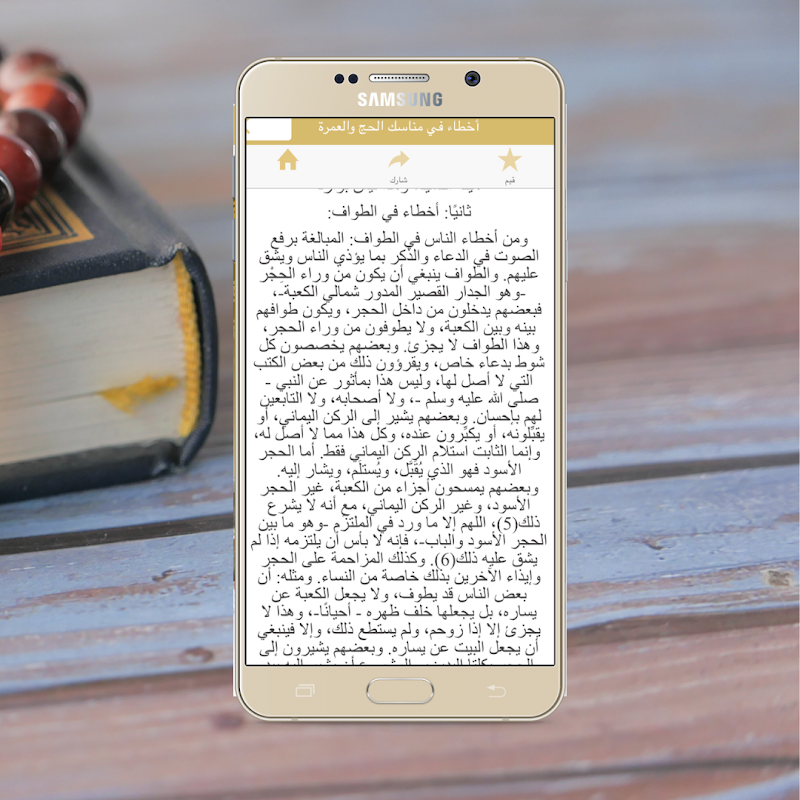 SAMSUNG
أخطاء في مناسك الحج والعمرة
شارك
قيم
ثانيًا: أخطاء في الطواف:
ومن أخطاء الناس في الطواف: المبالغة برفع
الصوت في الدعاء والذكر بما يؤذي الناس ويشق
عليهم. والطواف ينبغي أن يكون من وراء الحِجْر
-وهو الجدار القصير المدور شمالي الكعبة-،
فبعضهم يدخلون من داخل الحجر، ويكون طوافهم
بينه وبين الكعبة، ولا يطوفون من وراء الحجر،
وهذا الطواف لا يجزئ. وبعضهم يخصصون كل
شوط بدعاء خاص، ويقرؤون ذلك من بعض الكتب
التي لا أصل لها، وليس هذا بمأثور عن النبي -
صلى الله عليه وسلم -، ولا أصحابه، ولا التابعين
لهم بإحسان. وبعضهم يشير إلى الركن اليماني، أو
يقبِّلونه، أو يكبِّرون عنده، وكل هذا مما لا أصل له،
وإنما الثابت استلام الركن اليماني فقط. أما الحجر
الأسود فهو الذي يُقبَّل، ويُستلَم، ويشار إليه.
وبعضهم يمسحون أجزاء من الكعبة، غير الحجر
الأسود، وغير الركن اليماني، مع أنه لا يشرع
ذلك(5)، اللهم إلا ما ورد في الملتزم -وهو ما بين
الحجر الأسود والباب-، فإنه لا بأس أن يلتزمه إذا لم
يشق عليه ذلك(6). وكذلك المزاحمة على الحجر
وإيذاء الآخرين بذلك خاصة من النساء. ومثله: أن
بعض الناس قد يطوف، ولا يجعل الكعبة عن
يساره، بل يجعلها خلف ظهره - أحيانًا-، وهذا لا
يجزئ إلا إذا زوحم، ولم يستطع ذلك، وإلا فينبغي
أن يجعل البيت عن يساره. وبعضهم يشيرون إلى